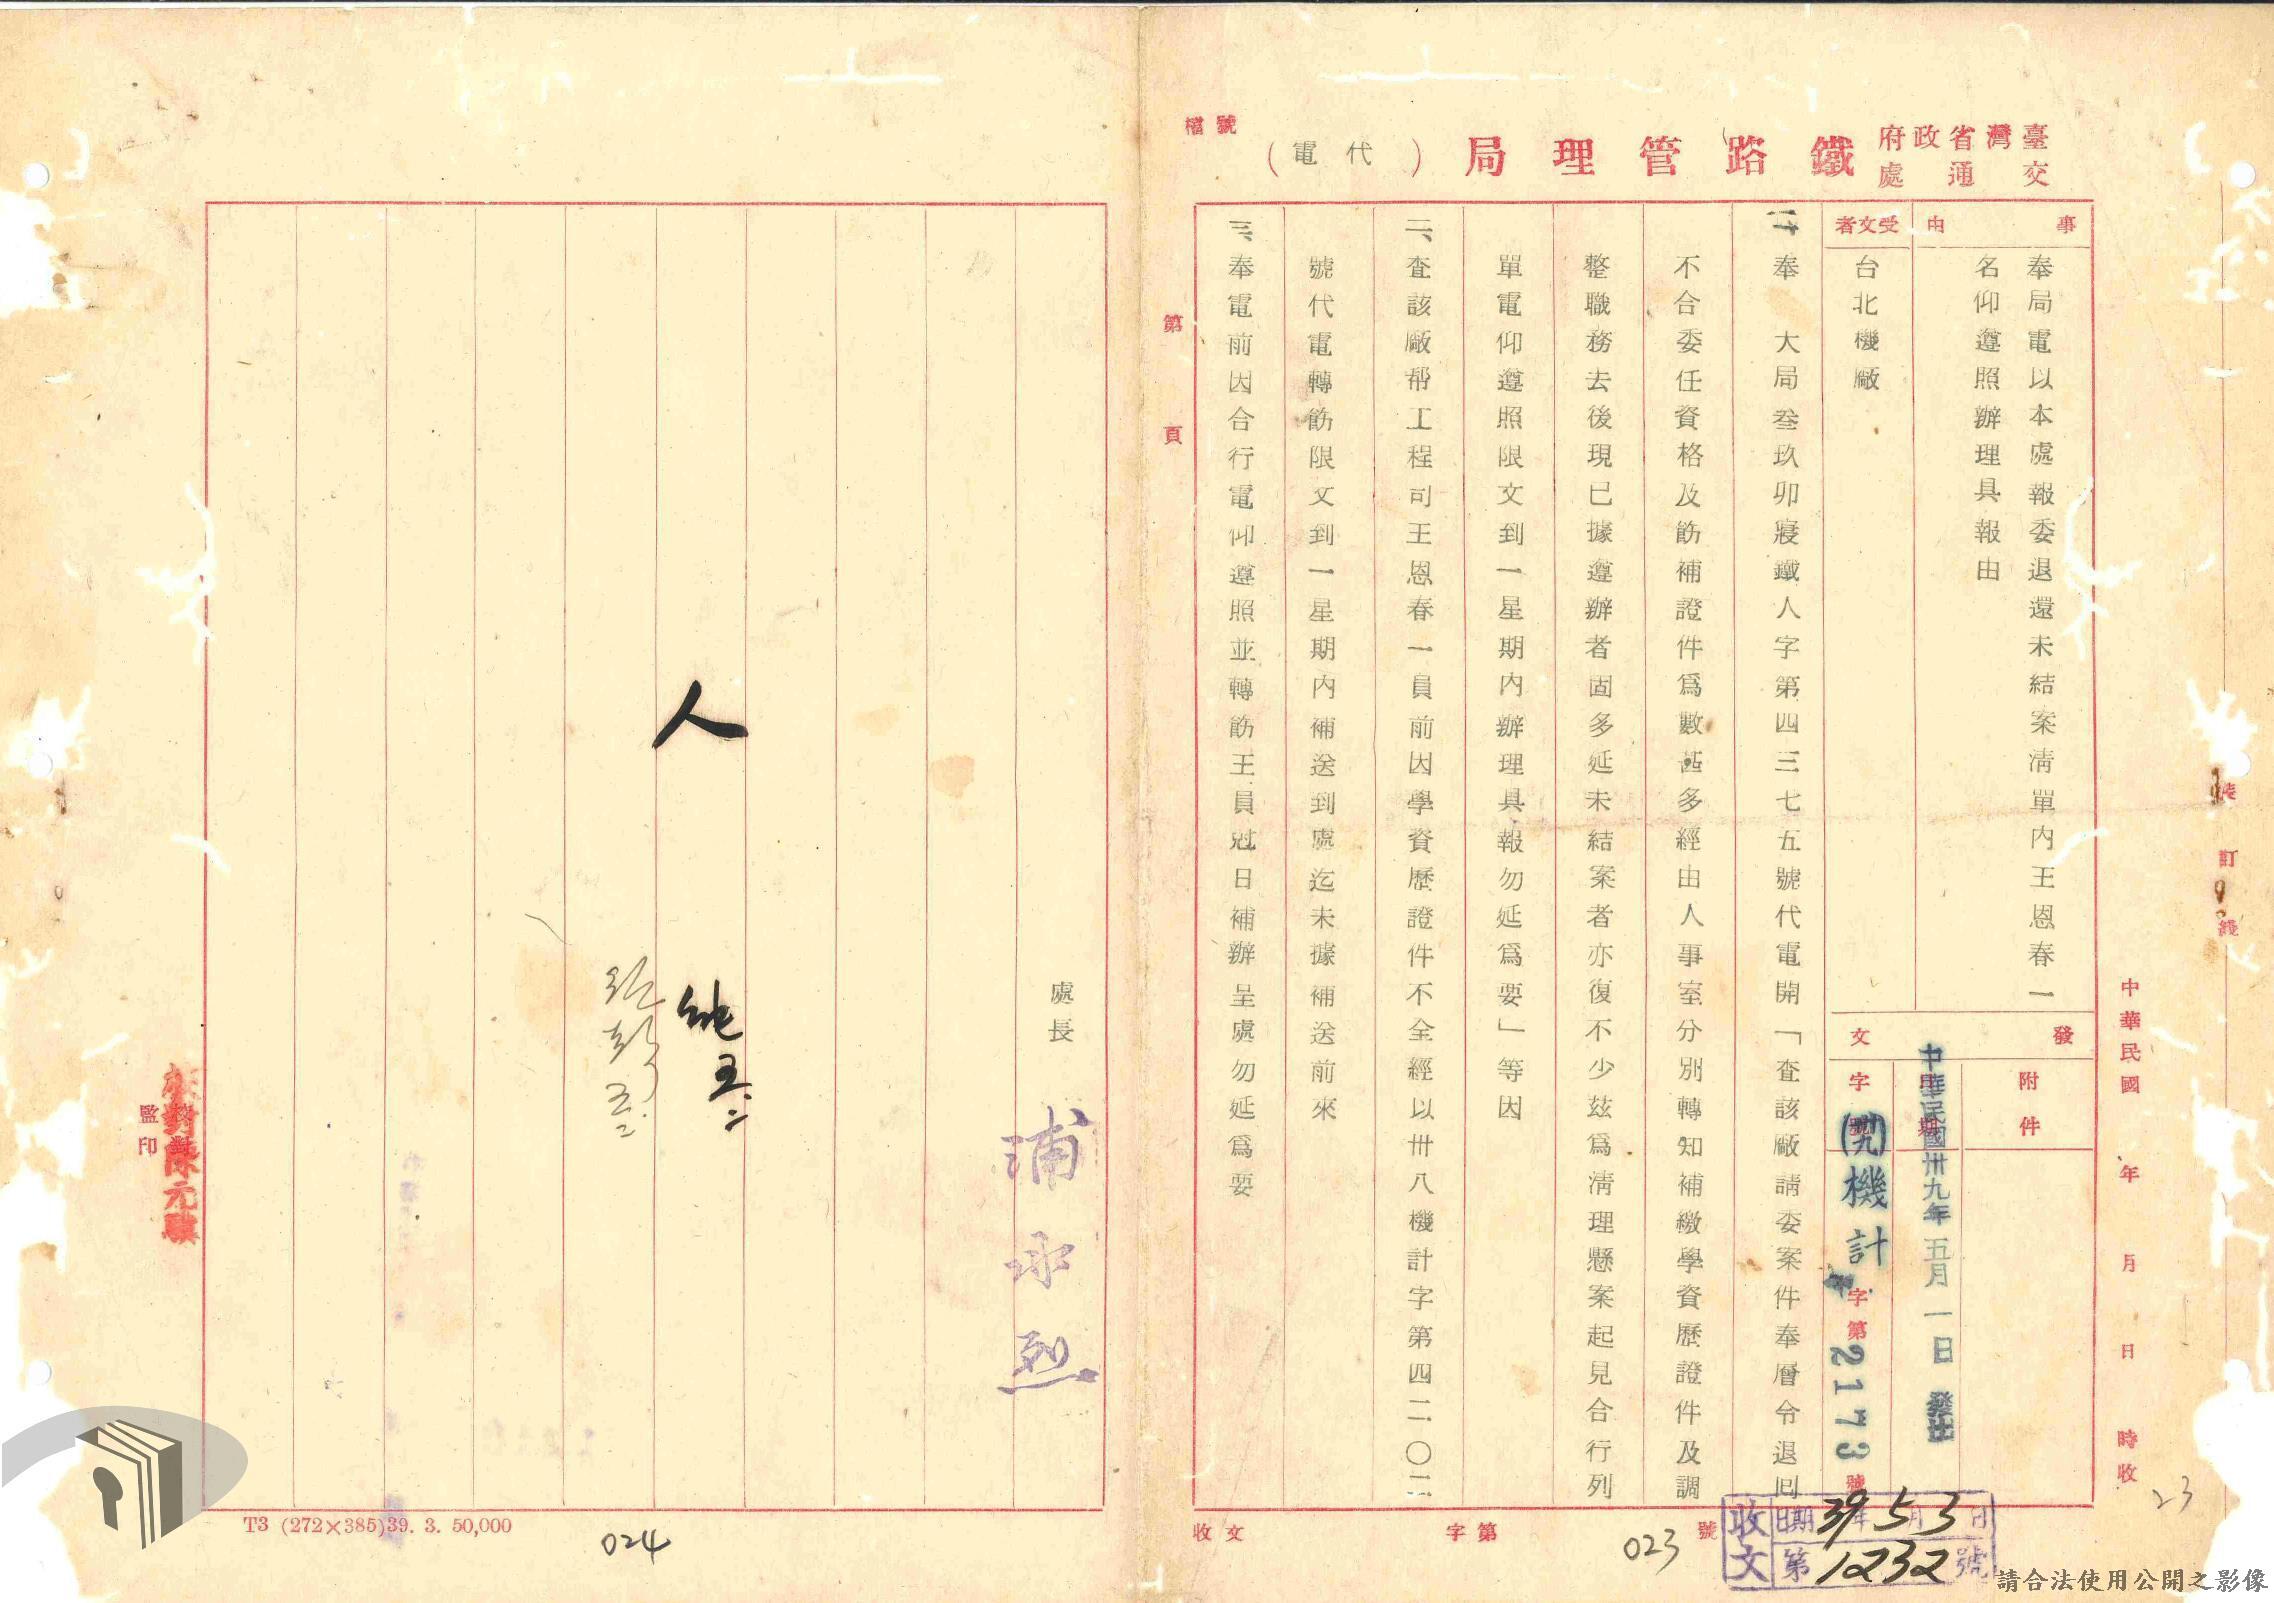 檔號
臺灣省政府
交通處
鐵路管理局（代電）
事由
奉局電以本處報委退還未結案清單內王恩春一
名仰遵照辦理具報由
受文者
台北機廠
發文
附件
日期
中華民國卅九年五月一日發出
字號
(卅九)機計字第2173號
一、奉　大局叁玖卯寢鐵人字第四三七五號代電開「查該廠請委案件奉層令退回
不合委任資格及飭補證件為數甚多經由人事室分別轉知補繳學資歷證件及調
整職務去後現已據遵辦者固多延未結案者亦復不少茲為清理懸案起見合行列
單電仰遵照限文到一星期內辦理具報勿延為要」等因
二、查該廠幫工程司王恩春一員前因學資歷證件不全經以卅八機計字第四二〇二
號代電轉飭限文到一星期內補送到處迄未據補送前來
三、奉電前因合行電仰遵照並轉飭王員尅日補辦呈處勿延為要
處長
浦永烈
人
五.二
五.二
中華民國　年　月　日　時收
裝訂線
第　頁
收文　字第　號
收文
日期39年5月3日
第1232號
023
23
024
監印
校對
T3 (272×385)39. 3. 50,000
請合法使用公開之影像